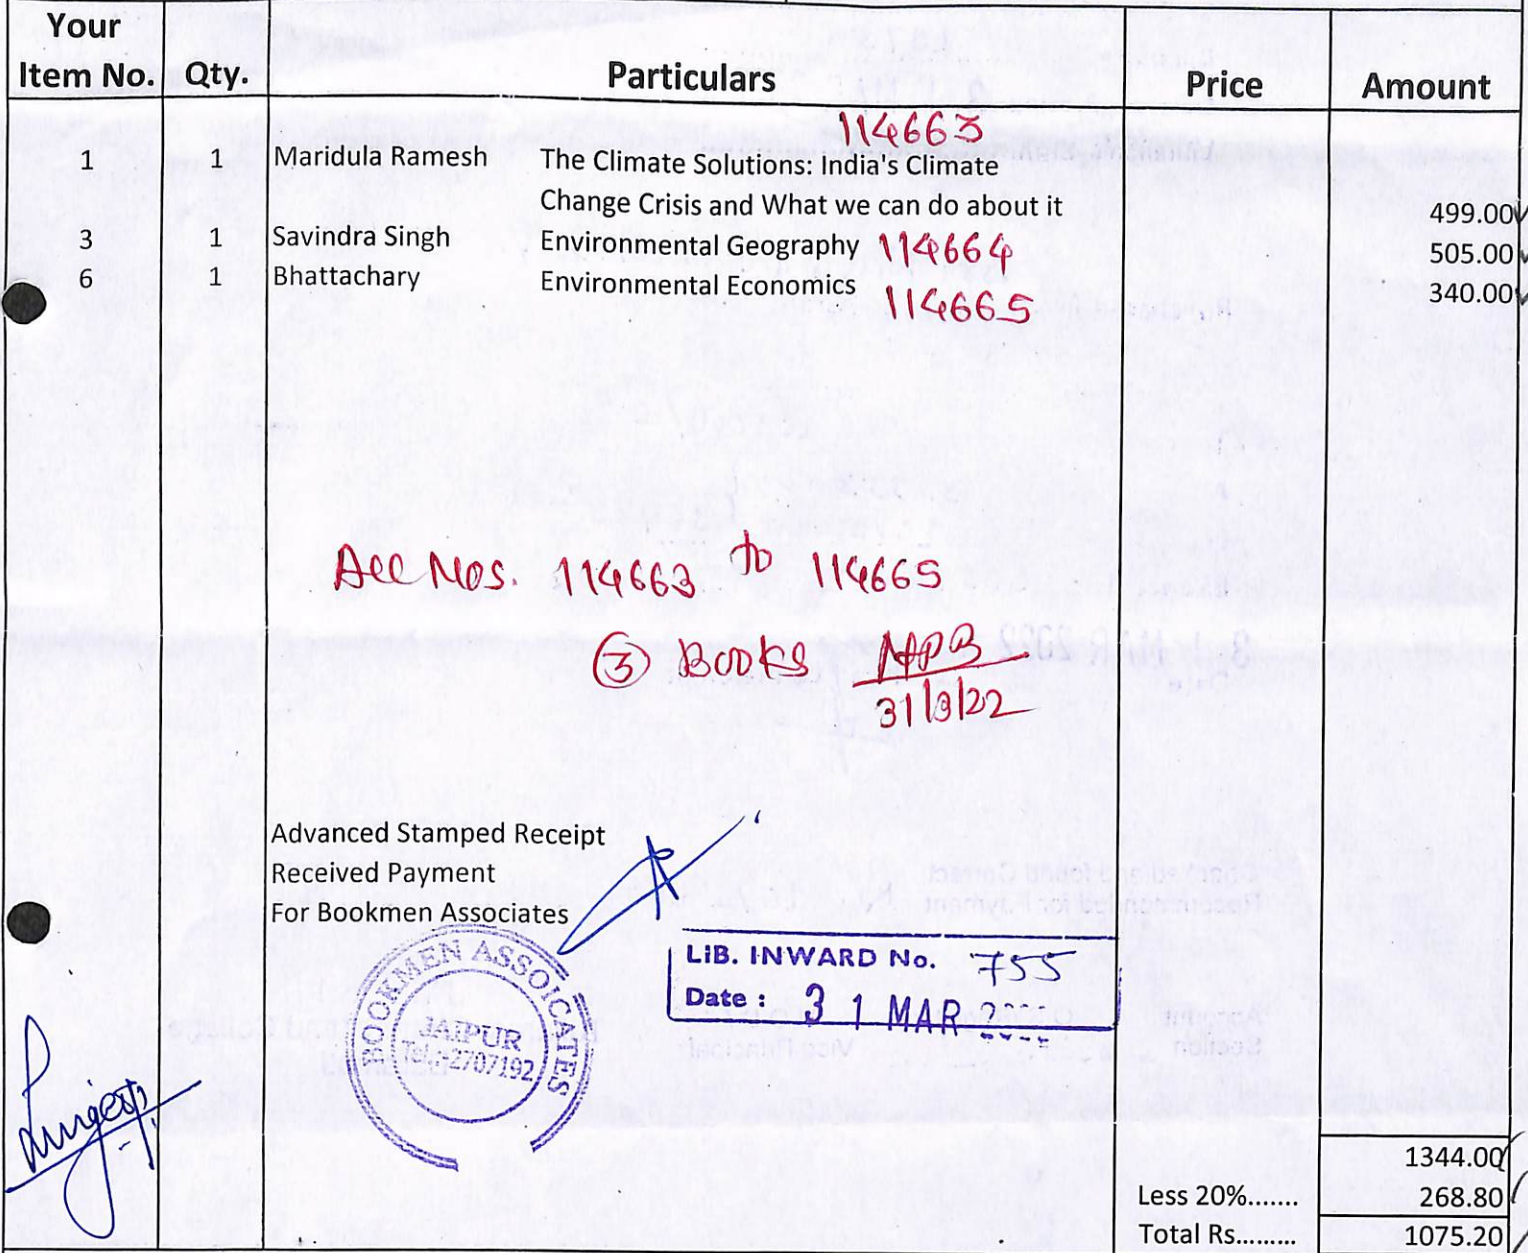 Your
Item No. Qty. Particulars Price Amount
114663
1 1 Maridula Ramesh The Climate Solutions: india's Climate
Change Crisis and What we can do about it 499.00
3 1 Savindra Singh Environmental Geography 114664 505.00
6 1 Bhattachary Environmental Economics 340.00
114665
Acc Nos. 114663 to 114665
3 BOOKS
31/3/22
Advanced Stamped Receipt
Received Payment
For Bookmen Associates
BOOKMEN ASSOICATES
JAIPUR
Tel.:-2707192
LiB. INWARD No. 755
Date : 3 1 MAR
1344.00
Less 20%....... 268.80
Total Rs......... 1075.20